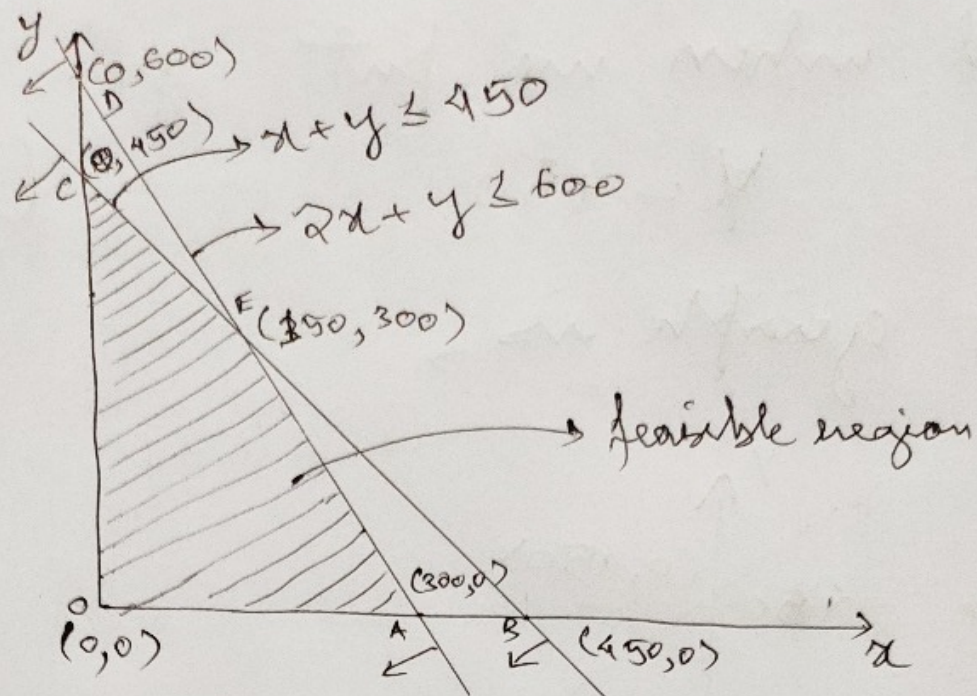 y
(0,600)
D
(0,450)
x + y ≤ 450
C
2x + y ≤ 600
E
(150,300)
feasible region
(300,0)
O
A
B
(0,0)
(450,0)
x